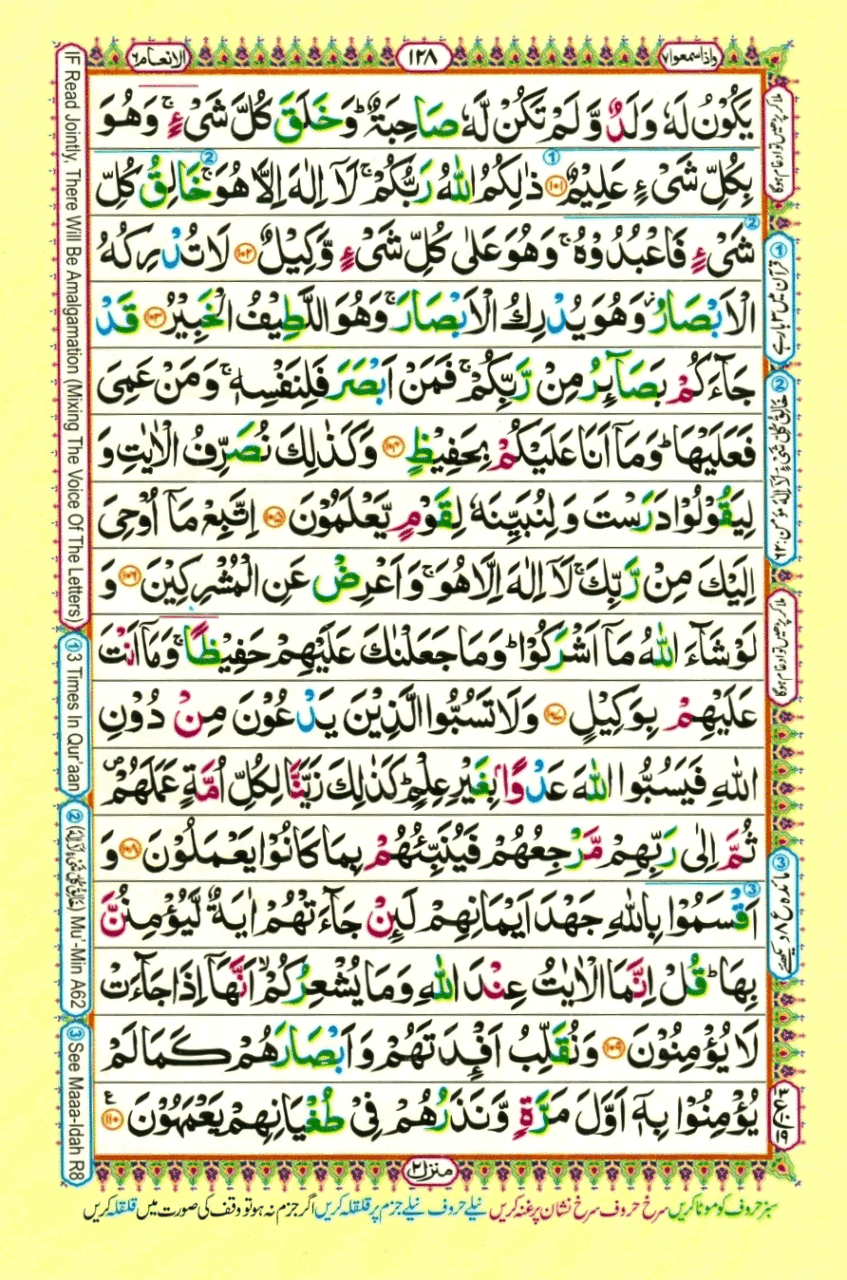 الانعام ٦
١٢٨
واذا سمعوا ٧
يَكُوْنُ لَهٗ وَلَدٌ وَّلَمْ تَكُنْ لَّهٗ صَاحِبَةٌ ؕ وَخَلَقَ كُلَّ شَىْءٍ ۚ وَهُوَ
بِكُلِّ شَىْءٍ عَلِيْمٌ ﴿۱۰۱﴾ ذٰلِكُمُ اللّٰهُ رَبُّكُمْ ۚ لَاۤ اِلٰهَ اِلَّا هُوَ ۚ خَالِقُ كُلِّ
شَىْءٍ فَاعْبُدُوْهُ ۚ وَهُوَ عَلٰى كُلِّ شَىْءٍ وَّكِيْلٌ ﴿۱۰۲﴾ لَا تُدْرِكُهُ
الْاَبْصَارُ ؗ وَهُوَ يُدْرِكُ الْاَبْصَارَ ۚ وَهُوَ اللَّطِيْفُ الْخَبِيْرُ ﴿۱۰۳﴾ قَدْ
جَآءَكُمْ بَصَآئِرُ مِنْ رَّبِّكُمْ ۚ فَمَنْ اَبْصَرَ فَلِنَفْسِهٖ ۚ وَمَنْ عَمِىَ
فَعَلَيْهَا ؕ وَمَاۤ اَنَا عَلَيْكُمْ بِحَفِيْظٍ ﴿۱۰۴﴾ وَكَذٰلِكَ نُصَرِّفُ الْاٰيٰتِ وَ
لِيَقُوْلُوْا دَرَسْتَ وَلِنُبَيِّنَهٗ لِقَوْمٍ يَّعْلَمُوْنَ ﴿۱۰۵﴾ اِتَّبِعْ مَاۤ اُوْحِىَ
اِلَيْكَ مِنْ رَّبِّكَ ۚ لَاۤ اِلٰهَ اِلَّا هُوَ ۚ وَاَعْرِضْ عَنِ الْمُشْرِكِيْنَ ﴿۱۰۶﴾ وَ
لَوْ شَآءَ اللّٰهُ مَاۤ اَشْرَكُوْا ؕ وَمَا جَعَلْنٰكَ عَلَيْهِمْ حَفِيْظًا ۚ وَمَاۤ اَنْتَ
عَلَيْهِمْ بِوَكِيْلٍ ﴿۱۰۷﴾ وَلَا تَسُبُّوا الَّذِيْنَ يَدْعُوْنَ مِنْ دُوْنِ
اللّٰهِ فَيَسُبُّوا اللّٰهَ عَدْوًۢا بِغَيْرِ عِلْمٍ ؕ كَذٰلِكَ زَيَّنَّا لِكُلِّ اُمَّةٍ عَمَلَهُمْ ۪
ثُمَّ اِلٰى رَبِّهِمْ مَّرْجِعُهُمْ فَيُنَبِّئُهُمْ بِمَا كَانُوْا يَعْمَلُوْنَ ﴿۱۰۸﴾ وَ
اَقْسَمُوْا بِاللّٰهِ جَهْدَ اَيْمَانِهِمْ لَئِنْ جَآءَتْهُمْ اٰيَةٌ لَّيُؤْمِنُنَّ
بِهَا ؕ قُلْ اِنَّمَا الْاٰيٰتُ عِنْدَ اللّٰهِ وَمَا يُشْعِرُكُمْ ۙ اَنَّهَاۤ اِذَا جَآءَتْ
لَا يُؤْمِنُوْنَ ﴿۱۰۹﴾ وَنُقَلِّبُ اَفْـِٕدَتَهُمْ وَاَبْصَارَهُمْ كَمَا لَمْ
يُؤْمِنُوْا بِهٖۤ اَوَّلَ مَرَّةٍ وَّنَذَرُهُمْ فِىْ طُغْيَانِهِمْ يَعْمَهُوْنَ ﴿۱۱۰﴾ ع
منزل ٢
سبز حروف کو موٹا کریں سرخ حروف سرخ نشان پر غنہ کریں نیلے حروف نیلے جزم پر قلقلہ کریں اگر جزم نہ ہو تو وقف کی صورت میں قلقلہ کریں
IF Read Jointly, There Will Be Amalgamation (Mixing The Voice Of The Letters)
① 3 Times In Qur'aan
② Mu'-Min A62
③ See Maaa-Idah R8
① قرآن میں ۳ بار ہے